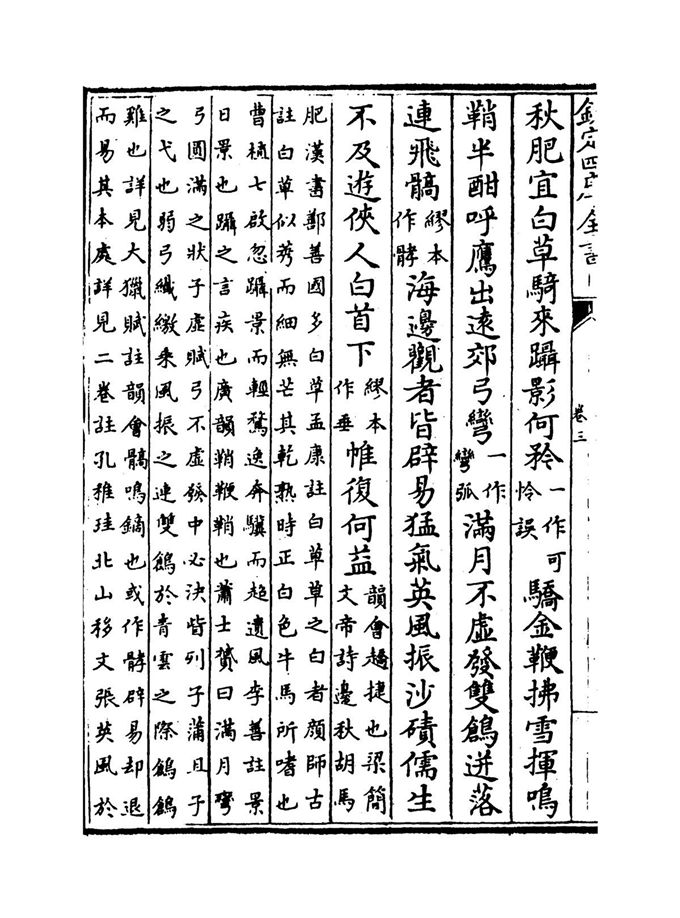 欽定四庫全書
卷三
秋肥宜白草騎來躡影何矜一作可怜誤驕金鞭拂雪揮鳴
鞘半酣呼鷹出遠郊弓彎一作彎弧滿月不虛發雙鶬迸落
連飛髇繆本作骹海邊觀者皆辟易猛氣英風振沙磧儒生
不及遊俠人白首下繆本作垂帷復何益韻會趫捷也梁簡文帝詩邊秋胡馬
肥漢書鄯善國多白草孟康註白草草之白者顏師古
註白草似莠而細無芒其乾熟時正白色牛馬所嗜也
曹植七啟忽躡景而輕騖逸奔驥而超遺風李善註景
日景也躡之言疾也廣韻鞘鞭鞘也蕭士贇曰滿月彎
弓圓滿之狀子虛賦弓不虛發中必決眥列子蒲且子
之弋也弱弓纖繳乘風振之連雙鶬於青雲之際鶬鶬
雞也詳見大獵賦註韻會髇鳴鏑也或作骹辟易却退
而易其本處詳見二卷註孔稚珪北山移文張英風於